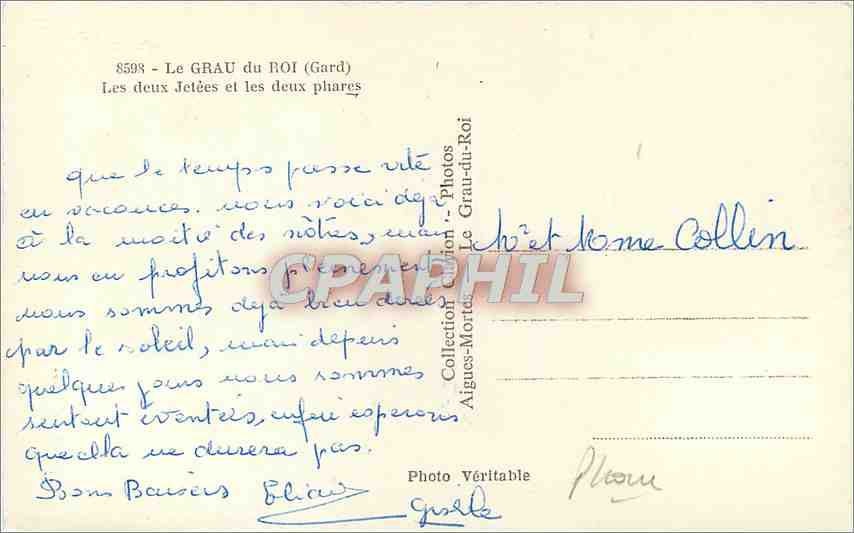 8598 - Le GRAU du ROI (Gard)
Les deux Jetées et les deux phares
que le temps passe vite
en vacances. nous voici déjà
à la moitié des nôtres, mais
nous en profitons pleinement
nous sommes déjà bien dorées
par le soleil, mais depuis
quelques jours nous sommes
surtout éventées, enfin espérons
que cela ne durera pas.
Bons Baisers
Giselle
Photo Véritable
Collection - Photos
Aigues-Mortes Le Grau-du-Roi
Mr et Mme Collin
Phare
CPAPHIL